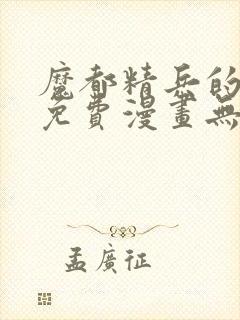 魔都精兵的
免費漫畫無
孟廣征